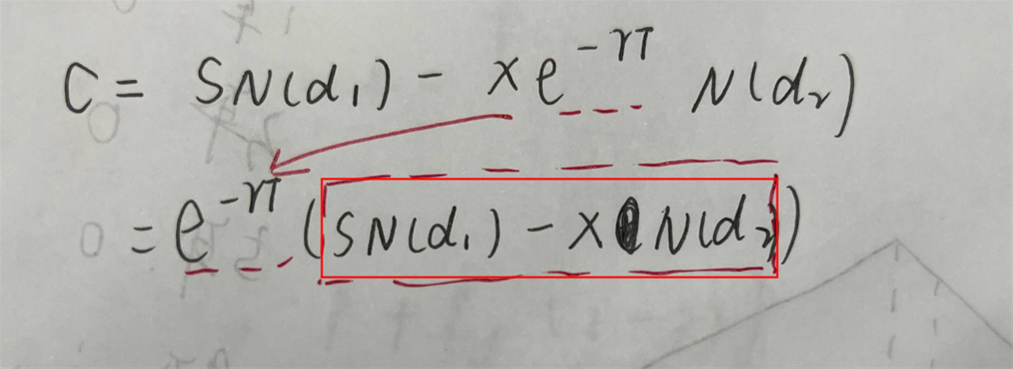 C = SN(d₁) - Xe^{-rT} N(d₂)
= e^{-rT} (SN(d₁) - X N(d₂))